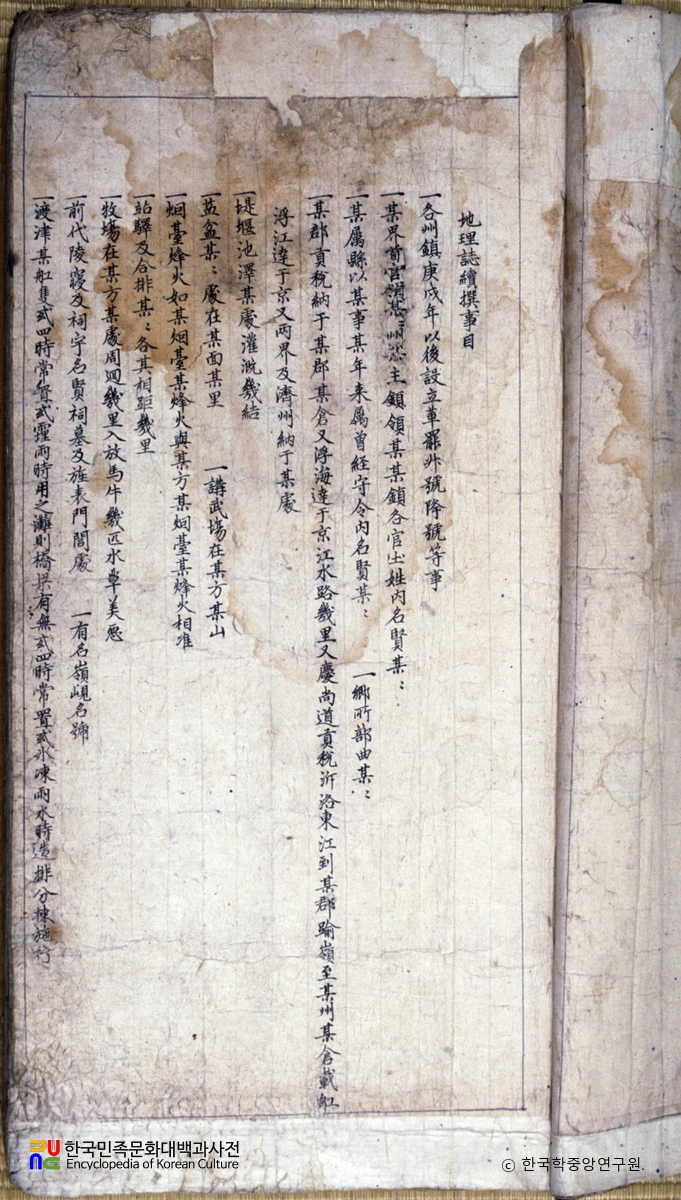 地理誌續撰事目
一各州鎮庚戌年以後設立革罷升號降號等事
一某界首官 主鎮領某某鎮各官土姓内名賢某〻
一某屬縣以某事某年来屬曾經守令内名賢某〻 一鄉所部曲某〻
一某郡貢稅納于某郡某倉又浮海達于京江水路幾里又慶尚道貢稅泝洛東江到某郡踰嶺至某州某倉載舡
浮江達于京又两界及濟州納于某處
一堤堰池澤某處灌漑幾結
一盐盆某〻處在某面某里 一講武塲在某方某山
一烟臺烽火如某烟臺某烽火與某方某烟臺某烽火相准
一站驛及合排某〻各其相距幾里
一牧塲在某方某處周廻幾里入放馬牛幾匹水草美惡
一前代陵寢及祠宇名賢祠墓及旌表門閭處 一有名嶺峴名號
一渡津某舡隻或四時常置或霪雨時用之灘則橋梁有無或四時常置或氷凍雨水時造排分揀施行
한국민족문화대백과사전
Encyclopedia of Korean Culture
© 한국학중앙연구원.